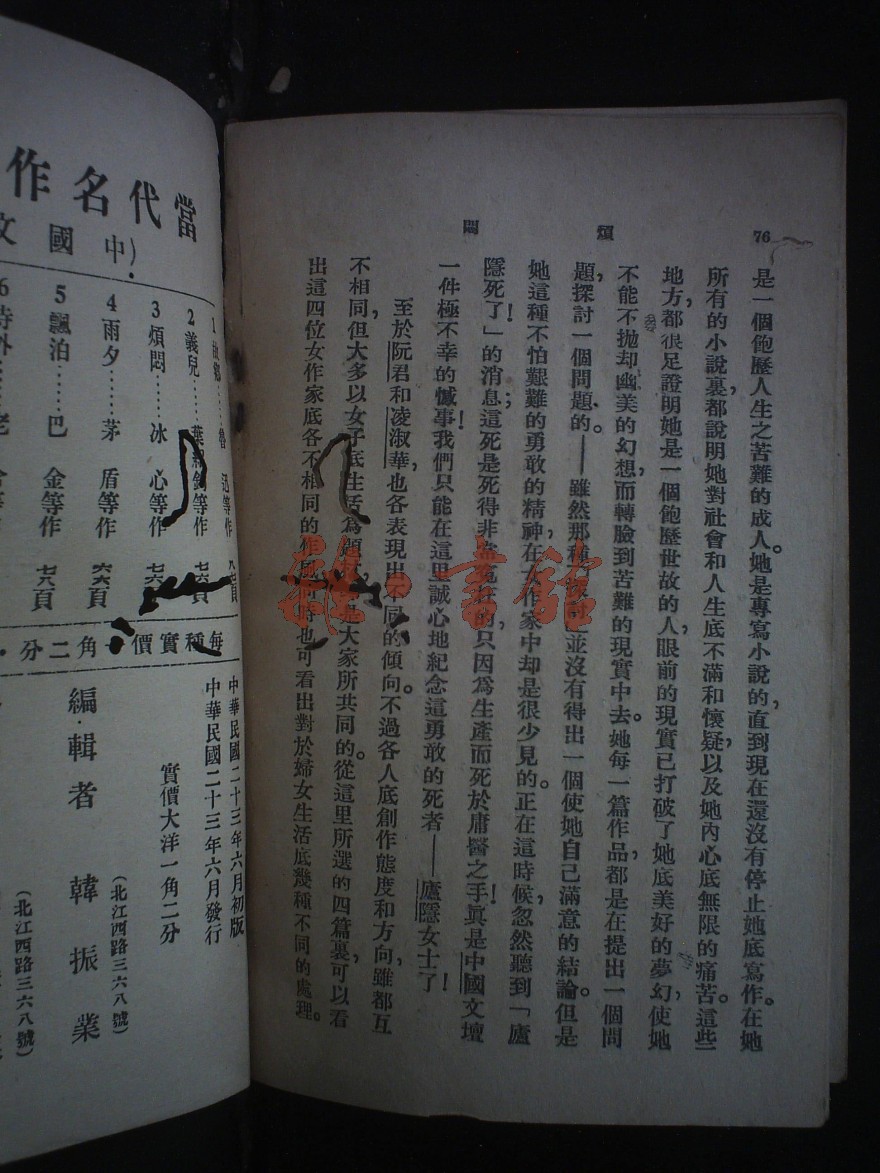 76
煩　悶
是一個飽歷人生之苦難的成人。她是專寫小說的，直到現在還沒有停止她底寫作。在她
所有的小說裏，都說明她對社會和人生底不滿和懷疑，以及她內心底無限的痛苦。這些
地方，都很足證明她是一個飽歷世故的人，眼前的現實已打破了她底美好的夢幻，使她
不能不拋却幽美的幻想，而轉臉到苦難的現實中去。她每一篇作品，都是在提出一個問
題，探討一個問題的。——雖然那種探討，並沒有得出一個使她自己滿意的結論。但是
她這種不怕艱難的勇敢的精神，在女作家中却是很少見的。正在這時候，忽然聽到「廬
隱死了！」的消息；這死是死得非常冤枉的，只因為生產而死於庸醫之手！眞是中國文壇
一件極不幸的憾事！我們只能在這里誠心地紀念這勇敢的死者——廬隱女士了！
至於阮君和凌淑華，也各表現出不同的傾向。不過各人底創作態度和方向，雖都互
不相同，但大多以女子底生活為題
是大家所共同的。從這里所選的四篇裏，可以看
出這四位女作家底各不相同的作風，同時也可看出對於婦女生活底幾種不同的處理。
雜·書館
當代名作
(中國文
1 故鄉……魯　迅等作　頁
2 義兒……葉紹鈞等作　頁
3 煩悶……冰　心等作　頁
4 雨夕……茅　盾等作　頁
5 飄泊……巴　金等作　七八頁
6
每種實價一角二分
中華民國二十三年六月初版
中華民國二十三年六月發行
實價大洋一角二分
編輯者　韓振業
(北江西路三六八號)
(北江西路三六八號)